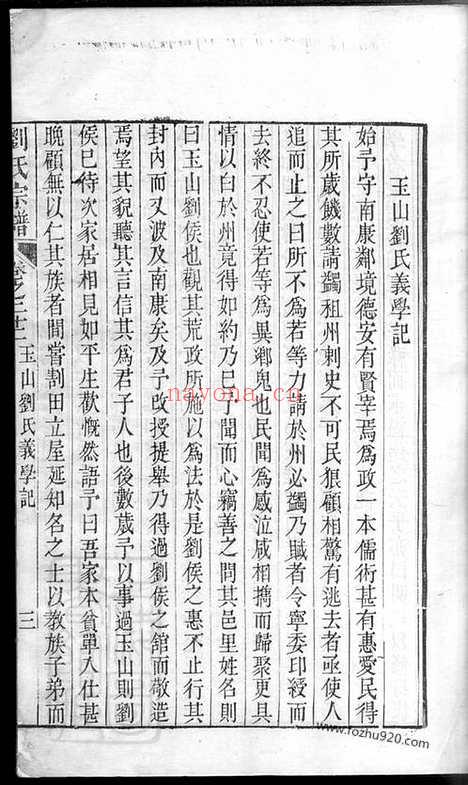 玉山劉氏義學記
始予守南康鄰境德安有賢宰焉為政一本儒術甚有惠愛民得
其所歲饑數請蠲租州刺史不可民狼顧相驚有逃去者亟使人
追而止之曰所為若等力請於州必蠲乃贓者令寧委印綬而
去終不忍使若等為異鄉鬼也民間為感泣咸相擕而歸聚更具
情以白於州竟得如約乃已予聞而心竊善之問其邑里姓名則
曰玉山劉侯也觀其荒政所施以為法於是劉侯之惠不止行其
封內而又波及南康矣及予改授提舉乃得過劉侯之舘而敬造
焉望其貌聽其言信其為君子人也後數歲予以事過玉山則劉
侯已待次家居相見如平生歡慨然語予曰吾家本貧單入仕甚
晚顧無以仁其族者間嘗割田立屋延知名之士以教族子弟而
劉氏宗譜
卷之二十一
玉山劉氏義學記
三
nayona.cn
www.fozhu920.com